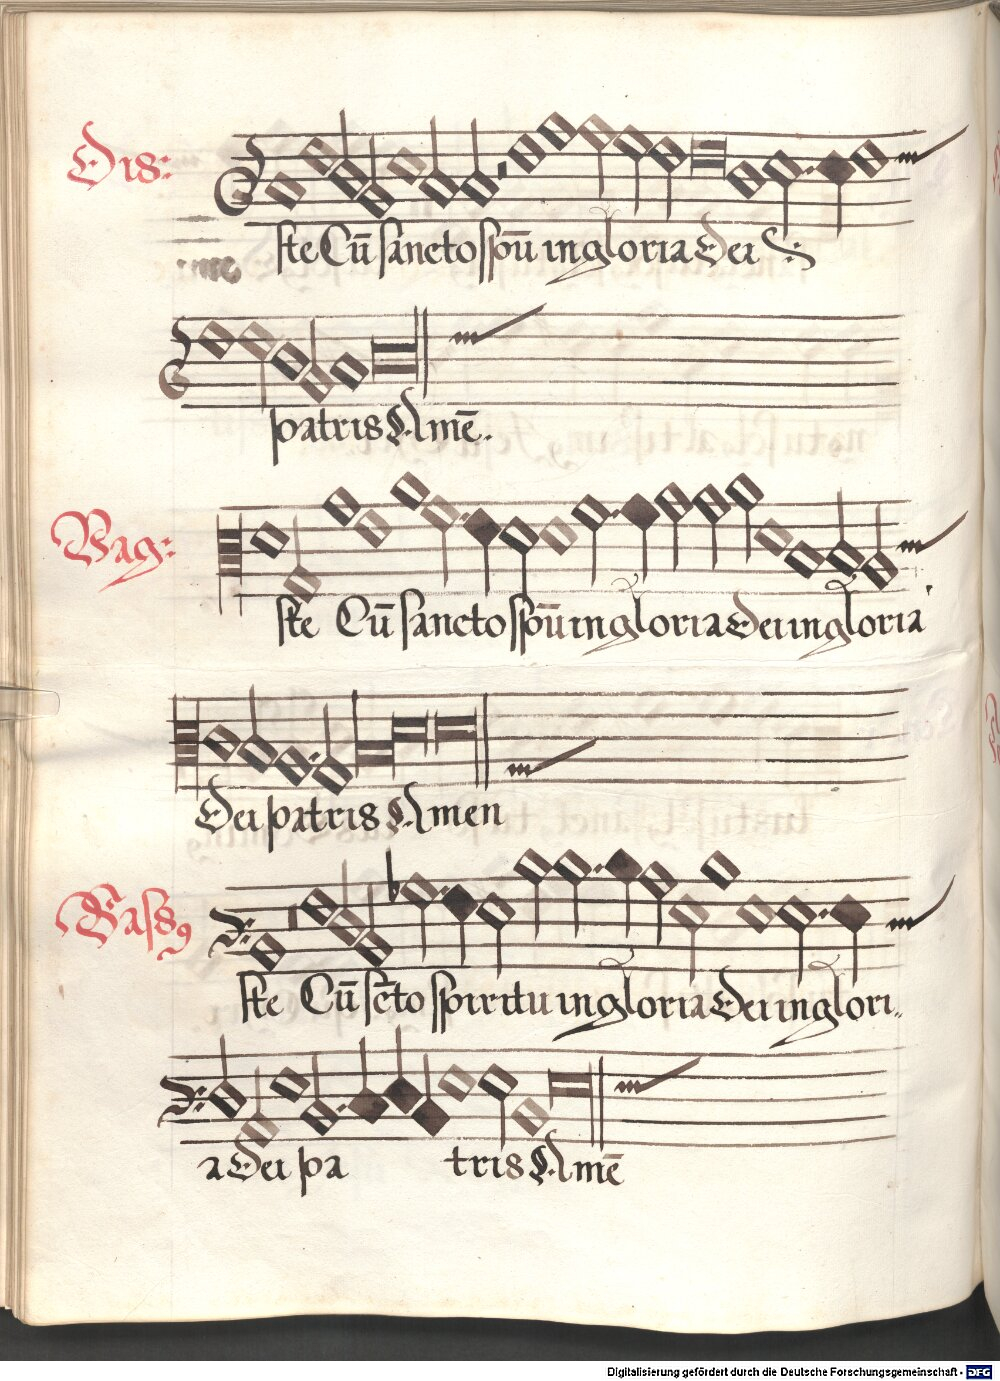 Dis:
ste Cū sancto spū in gloria Dei
patris Amē.
Vag:
ste Cū sancto spū in gloria Dei in gloria
Dei patris Amen
Bassꝰ
ste Cū sc̄to spiritu in gloria Dei in glori
a Dei pa tris Amē
Digitalisierung gefördert durch die Deutsche Forschungsgemeinschaft - DFG